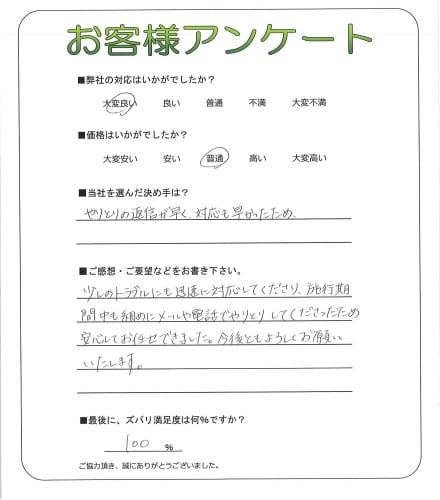 お客様アンケート
■弊社の対応はいかがでしたか？
大変良い 良い 普通 不満 大変不満
■価格はいかがでしたか？
大変安い 安い 普通 高い 大変高い
■当社を選んだ決め手は？
やりとりの返信が早く、対応も早かったため、
■ご感想・ご要望などをお書き下さい。
少しのトラブルにも迅速に対応してくださり、施行期
間中も細めにメールや電話でやりとりしてくださったため
安心してお任せできました。今後ともよろしくお願い
いたします。
■最後に、ズバリ満足度は何％ですか？
100 ％
ご協力頂き、誠にありがとうございました。